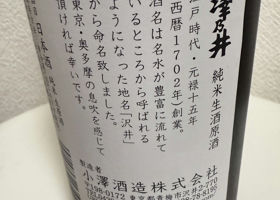 澤乃井 純米生酒原酒
江戸時代・元禄十五年
(西暦1702年)創業。
酒名は名水が豊富に流れて
いるところから呼ばれる
ようになった地名「沢井」
から命名致しました。
東京・奥多摩の息吹を感じて
頂ければ幸いです。
日本酒
製造者
小澤酒造株式会社
東京都青梅市沢井2-770